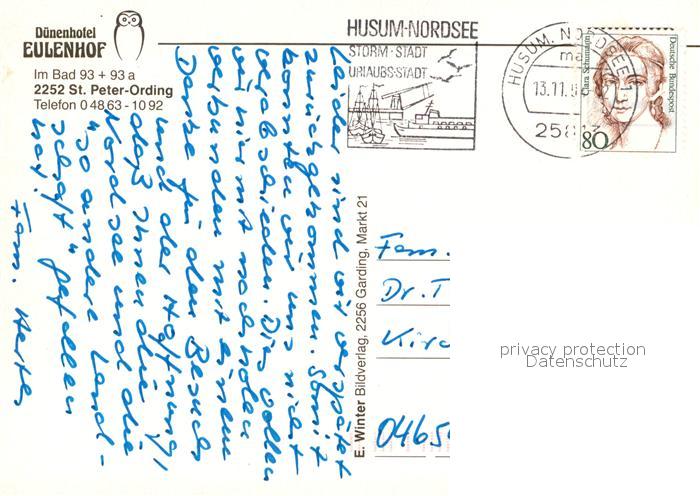 Dünenhotel
EULENHOF
Im Bad 93 + 93 a
2252 St. Peter-Ording
Telefon 0 48 63 - 10 92
HUSUM-NORDSEE
STORM-STADT
URLAUBS-STADT
HUSUM, NORDSEE 1
13.11.
258
Clara Schumann
Deutsche Bundespost
80
Leider sind wir verspätet
zurückgekommen. Somit
konnten wir uns nicht
verabschieden. Dies wollen
wir hiermit nachholen
verbunden mit einem
Danke für den Besuch
und der Hoffnung,
daß Ihnen die
Nordsee und die
"so andere Land-
schaft" gefallen
hat.
Fam.
E. Winter Bildverlag, 2256 Garding, Markt 21
Fam.
Dr. T
Kirc
0465
privacy protection
Datenschutz